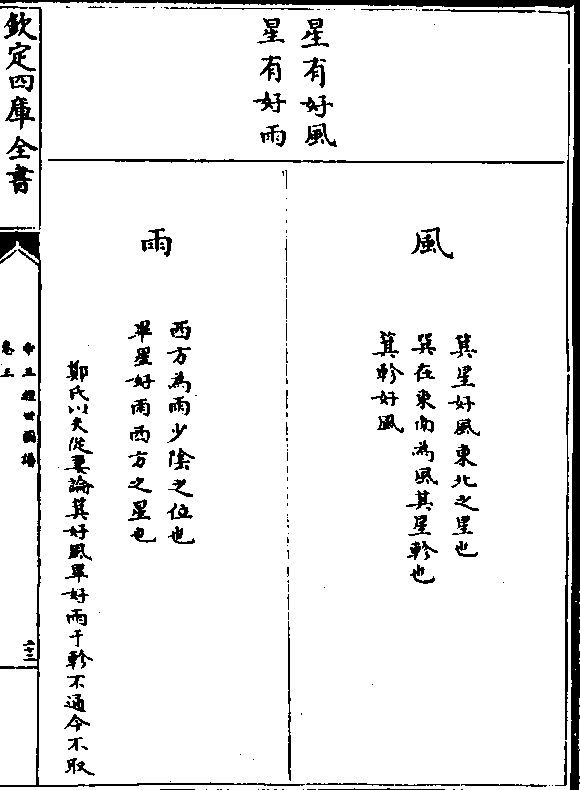 星有好風
星有好雨
風
箕星好風東北之星也
巽在東南為風其星軫也
箕軫好風
雨
西方為雨少陰之位也
畢星好雨西方之星也
鄭氏以夫從妻論箕好風畢好雨于軫不通今不取
欽定四庫全書
帝王經世圖譜
卷五
二十三